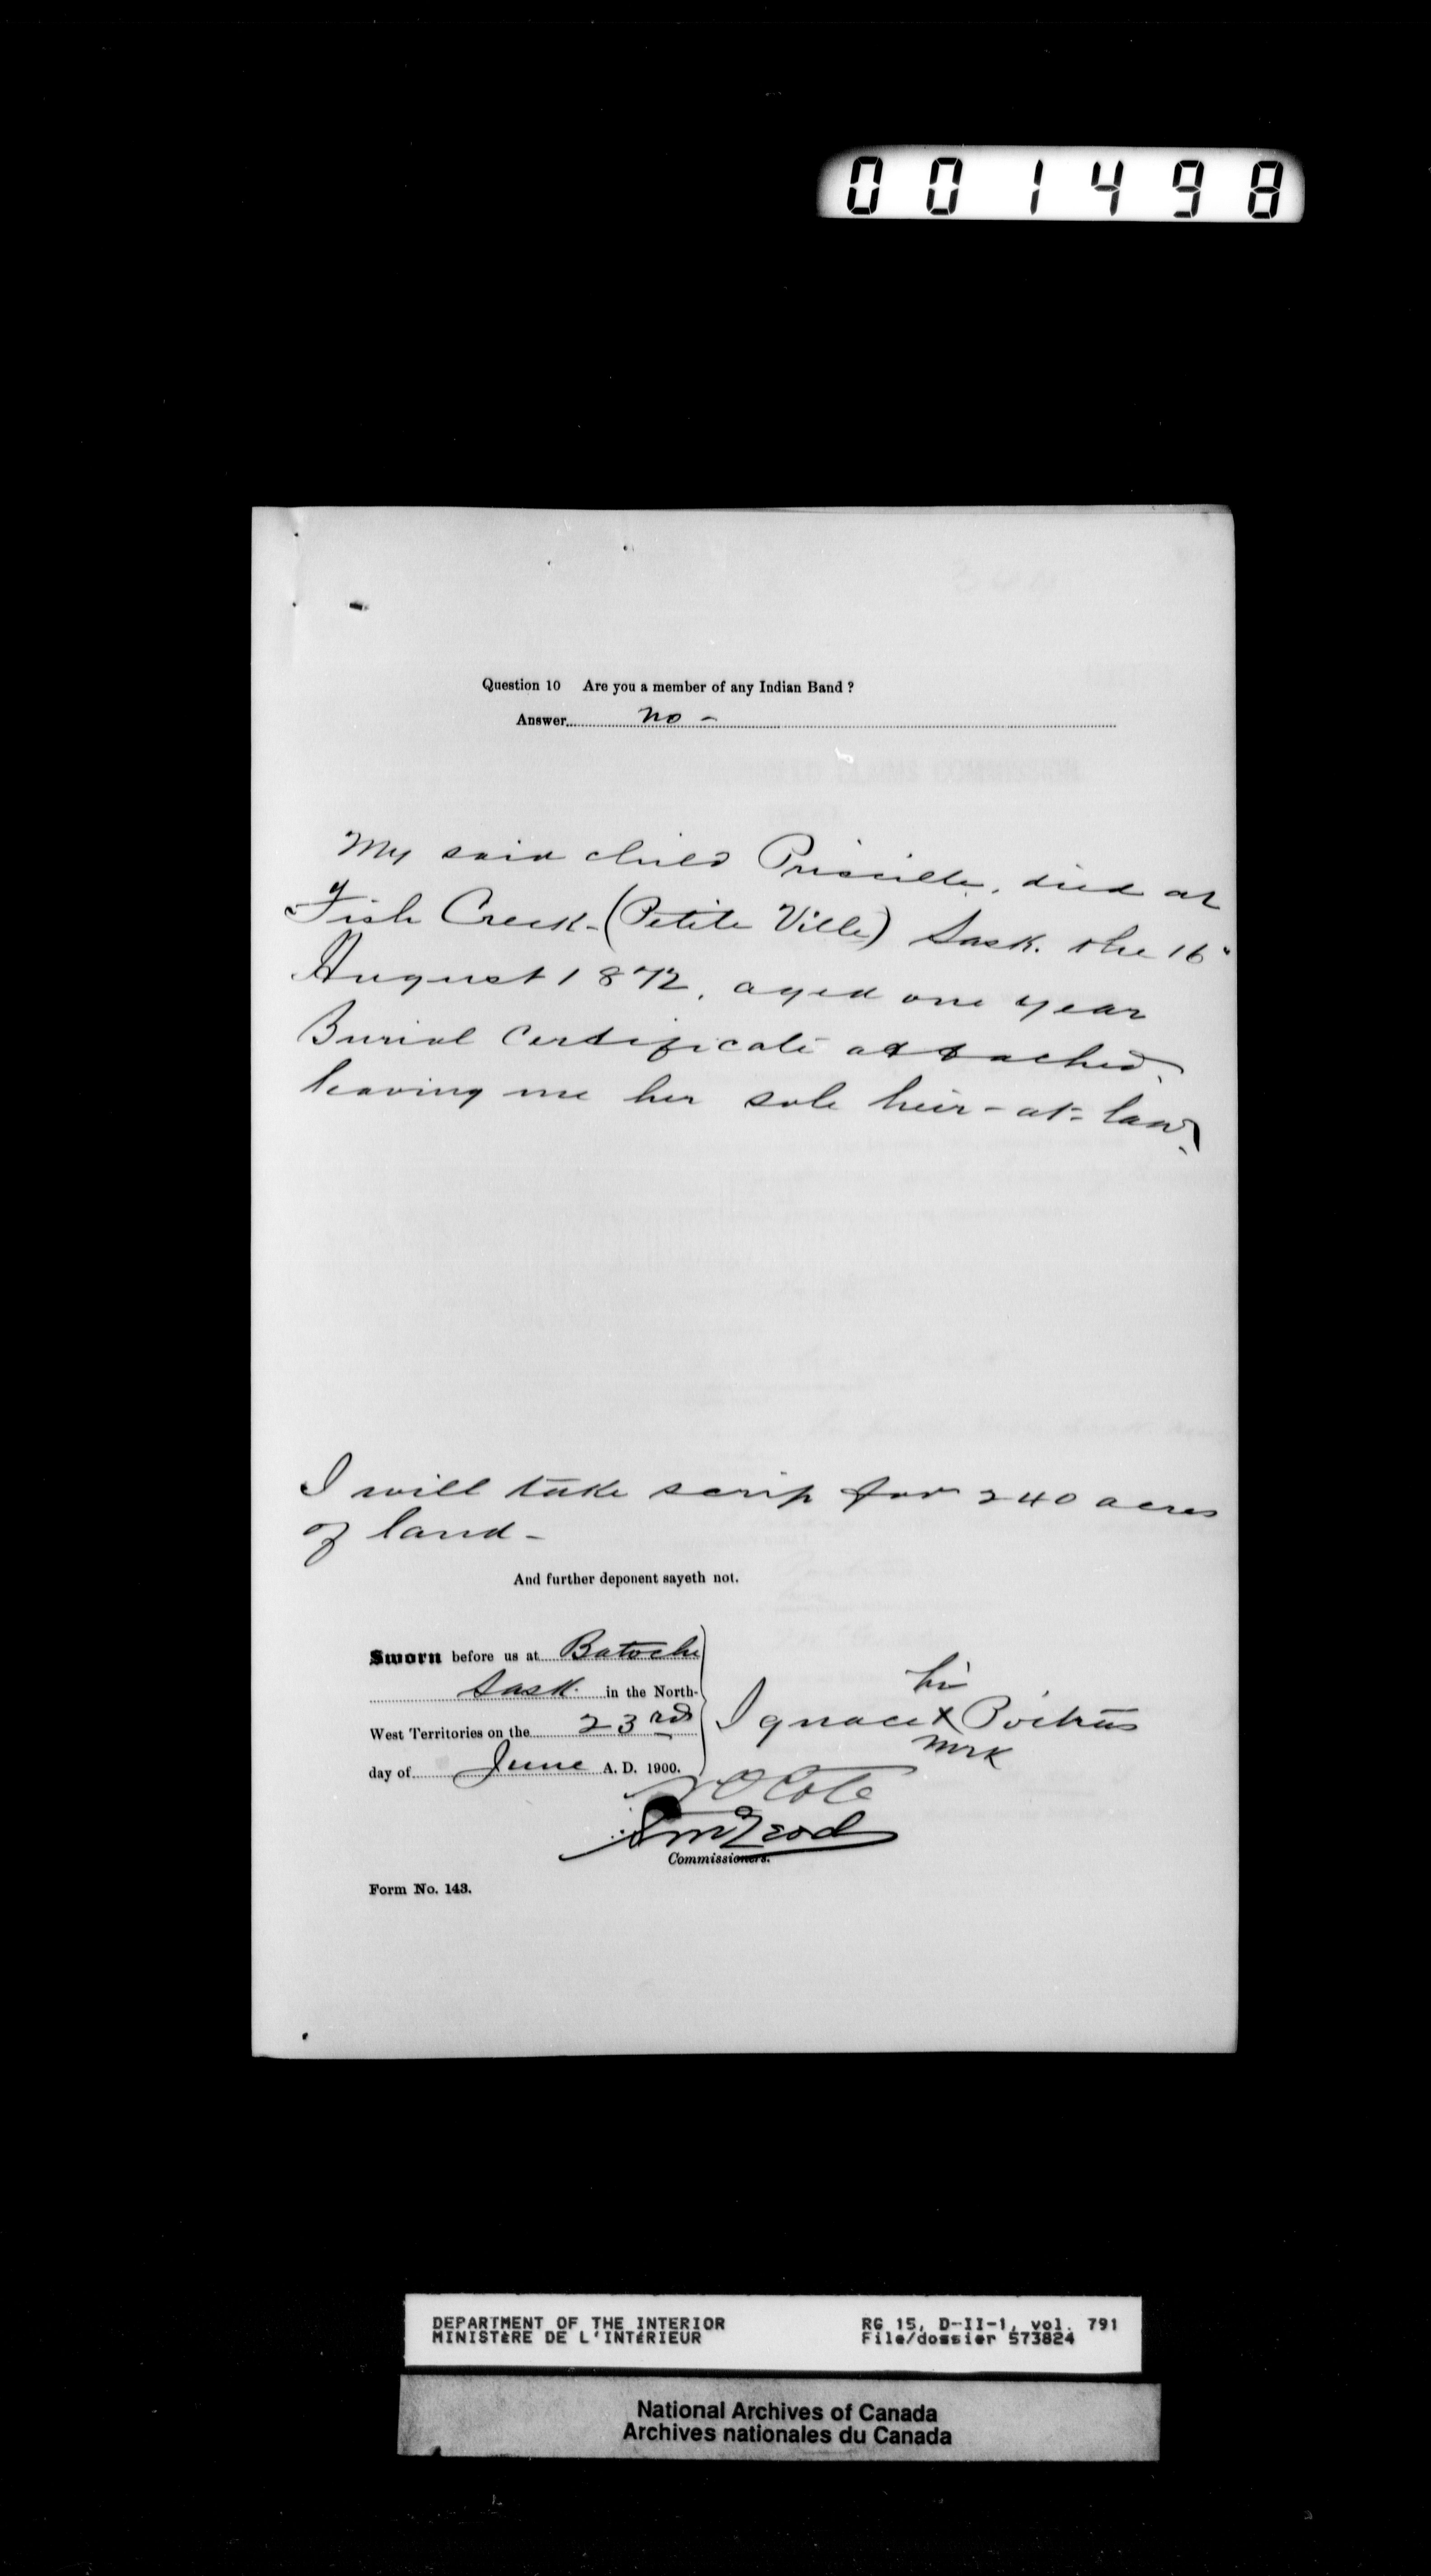 001498
Question 10 Are you a member of any Indian Band ?
Answer no -
My said child Priscille, died at
Fish Creek - (Petite Ville) Sask. the 16"
August 1872, aged one year
Burial Certificate attached,
leaving me her sole heir-at-law.
I will take scrip for 240 acres
of land -
And further deponent sayeth not.
Sworn before us at Batoche
Sask. in the North-
West Territories on the 23rd
day of June A. D. 1900.
his
Ignace X Poitras
mrk
Cote
McLeod
Commissioners.
Form No. 143.
DEPARTMENT OF THE INTERIOR
MINISTÈRE DE L'INTÉRIEUR
RG 15, D-II-1, vol. 791
File/dossier 573824
National Archives of Canada
Archives nationales du Canada